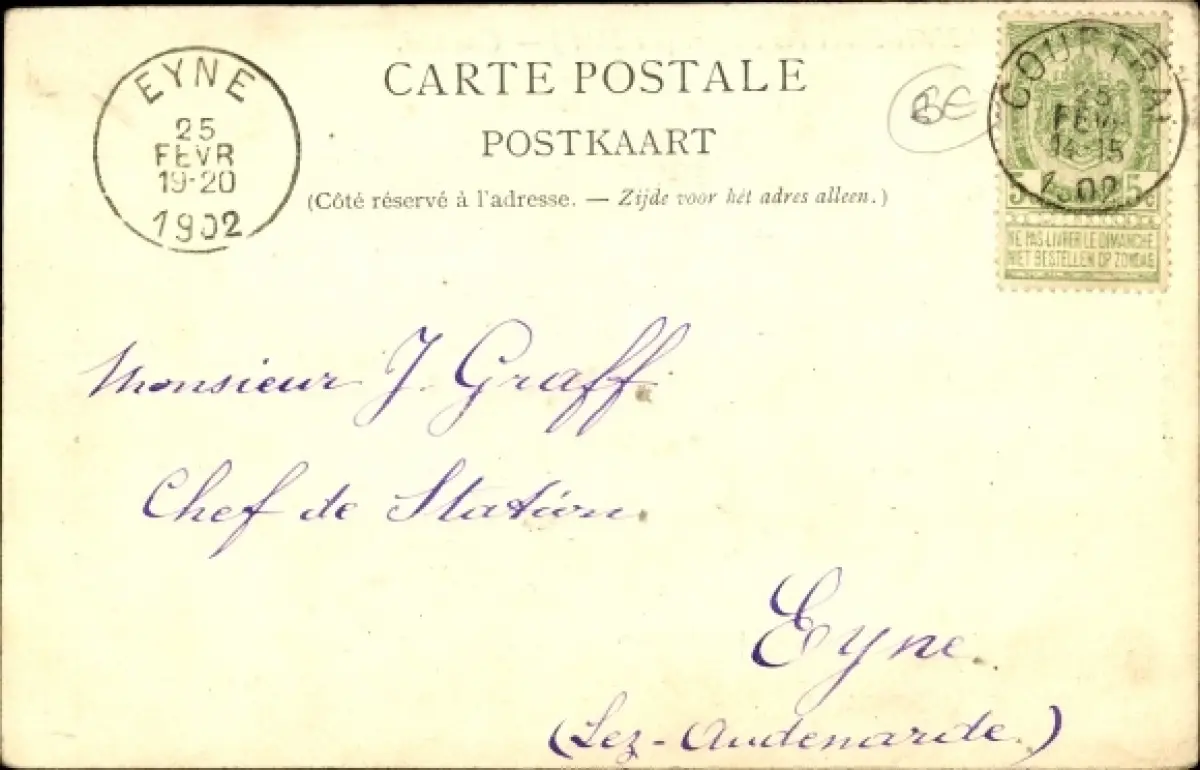 EYNE
25
FEVR
19-20
1902
CARTE POSTALE
POSTKAART
(Côté réservé à l'adresse. — Zijde voor hét adres alleen.)
COURTRAI
25
FEVR
14-15
1902
5c 5c
NE PAS LIVRER LE DIMANCHE
NIET BESTELLEN OP ZONDAG
Monsieur J. Graff.
Chef de Station.
Eyne.
(Lez-Audenarde.)